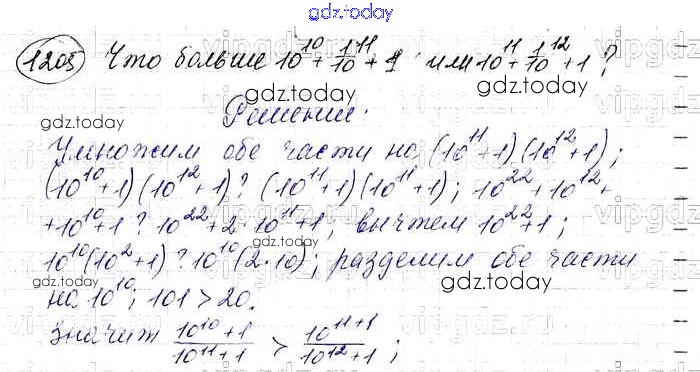 gdz.today
1205 Что больше 10^10 + 1/10^11 + 1 или 10^11 + 1/10^12 + 1 ?
gdz.today
gdz.today
Решение:
gdz.today
Умножим обе части на (10^11+1)(10^12+1);
(10^10+1)(10^12+1) ? (10^11+1)(10^11+1); 10^22+10^12+
+10^10+1 ? 10^22+2·10^11+1; вычтем 10^22+1;
gdz.today
10^10(10^2+1) ? 10^10(2·10); разделим обе части
gdz.today
gdz.today
на 10^10; 101 > 20.
Значит (10^10+1)/(10^11+1) > (10^11+1)/(10^12+1);
gdz.today